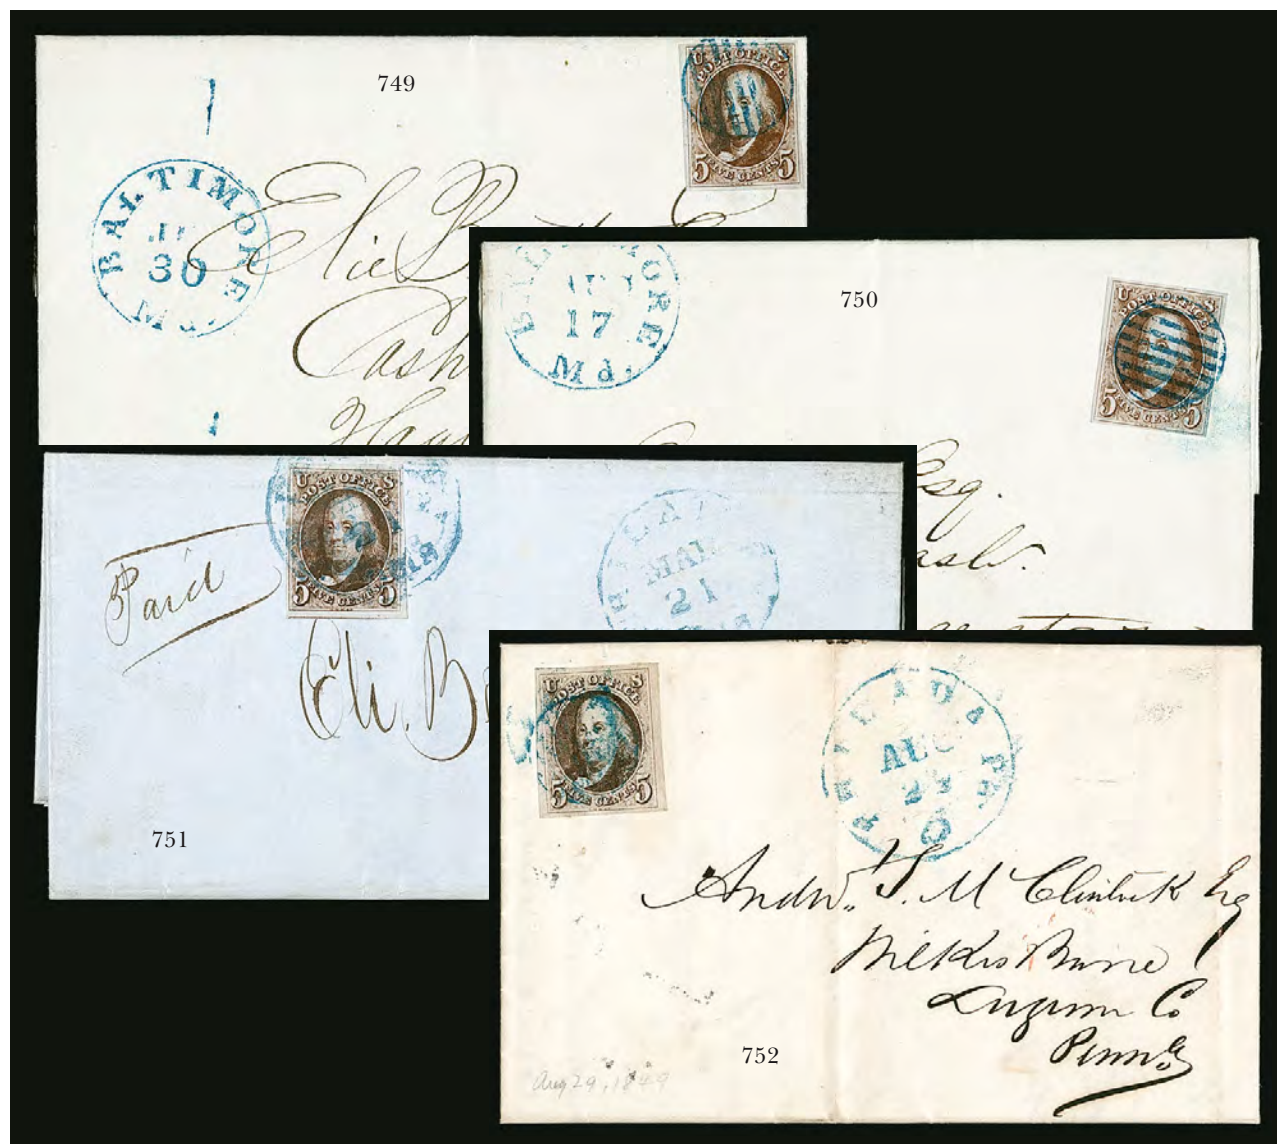 749
U S
POST OFFICE
5 FIVE CENTS 5
BALTIMORE Md.
30
Elie B
Cash
750
MORE Md.
17
U S
POST OFFICE
5 FIVE CENTS 5
Esq.
U S
POST OFFICE
5 FIVE CENTS 5
MAR
21
Paid
Eli. B
751
U S
POST OFFICE
5 FIVE CENTS 5
PHILADA Pa.
AUG
Andw. T. McClintock Esq
Wilkes Barre
Luzerne Co
Penna.
752
Aug 29, 1849